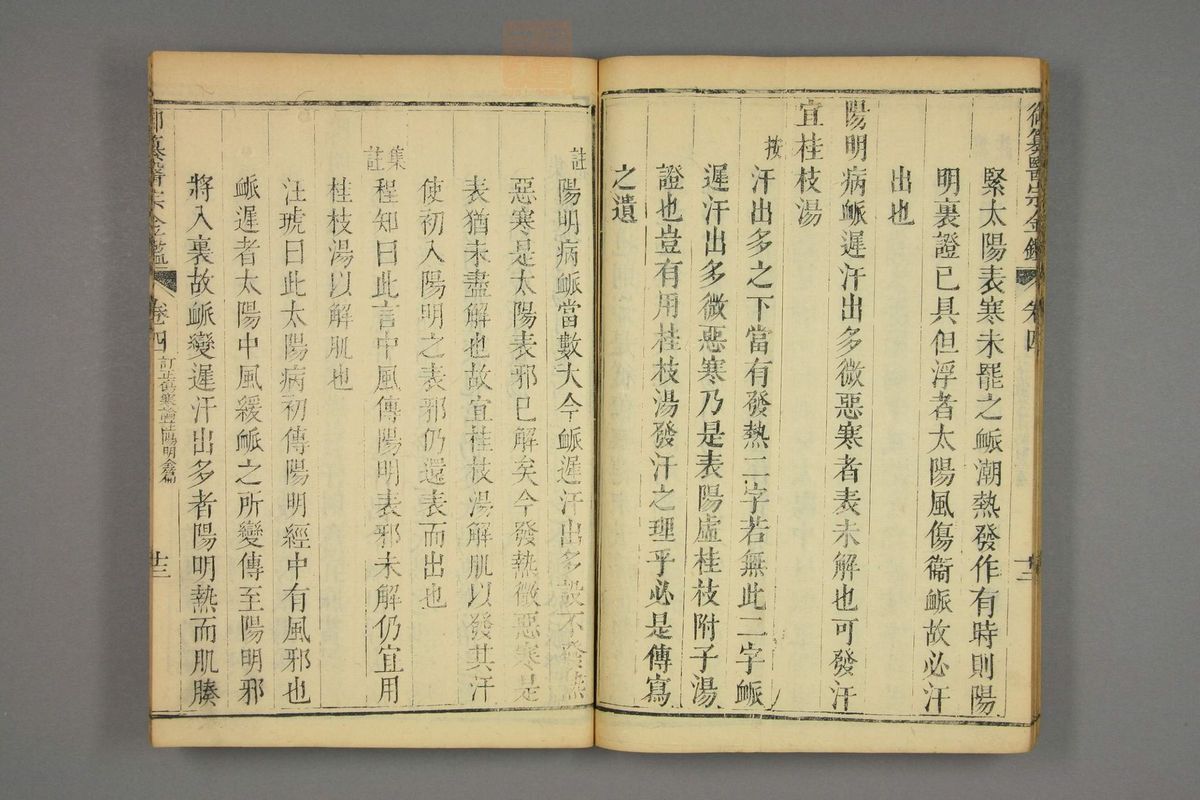 御纂醫宗金鑑 卷四 廿二
緊太陽表寒未罷之䘑潮熱發作有時則陽
明裏證已具但浮者太陽風傷衞䘑故必汗
出也
陽明病䘑遲汗出多微惡寒者表未解也可發汗
宜桂枝湯
按汗出多之下當有發熱二字若無此二字䘑
遲汗出多微惡寒乃是表陽虛桂枝附子湯
證也豈有用桂枝湯發汗之理乎必是傳寫
之遺
註陽明病䘑當數大今䘑遲汗出多設不發熱
惡寒是太陽表邪已解矣今發熱微惡寒是
表猶未盡解也故宜桂枝湯解肌以發其汗
使初入陽明之表邪仍還表而出也
集註程知曰此言中風傳陽明表邪未解仍宜用
桂枝湯以解肌也
汪琥曰此太陽病初傳陽明經中有風邪也
䘑遲者太陽中風緩䘑之所變傳至陽明邪
將入裏故䘑變遲汗出多者陽明熱而肌腠
御纂醫宗金鑑 卷四 訂正傷寒論註陽明全篇 廿三